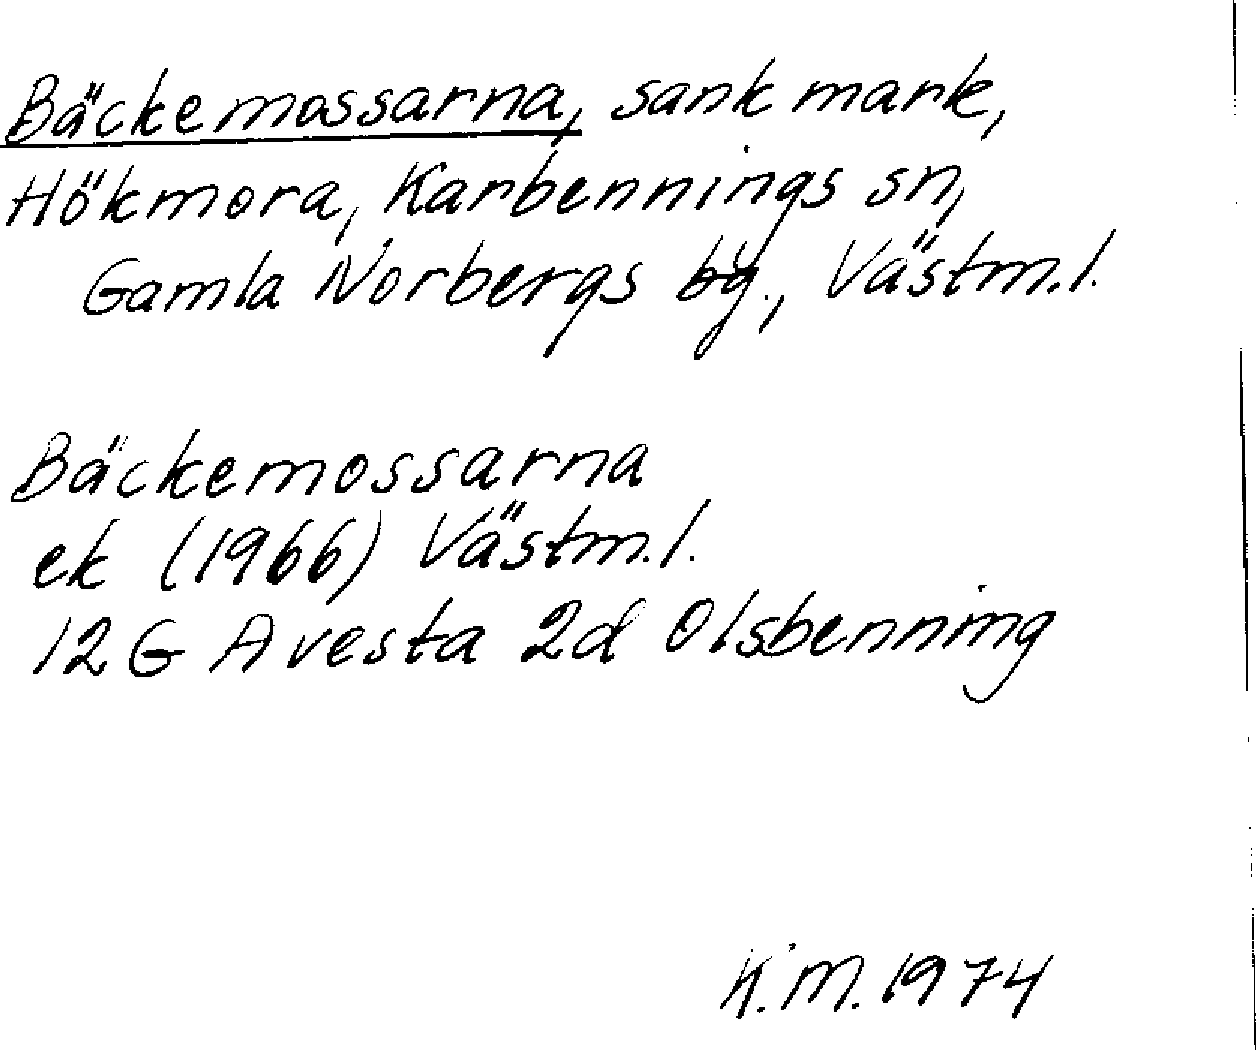 Bäckemossarna, sank mark,
Hökmora, Karbennings sn,
Gamla Norbergs bg., Västm.l.
Bäckemossarna
ek (1966) Västm.l.
12G Avesta 2d Olsbenning
K.M. 1974